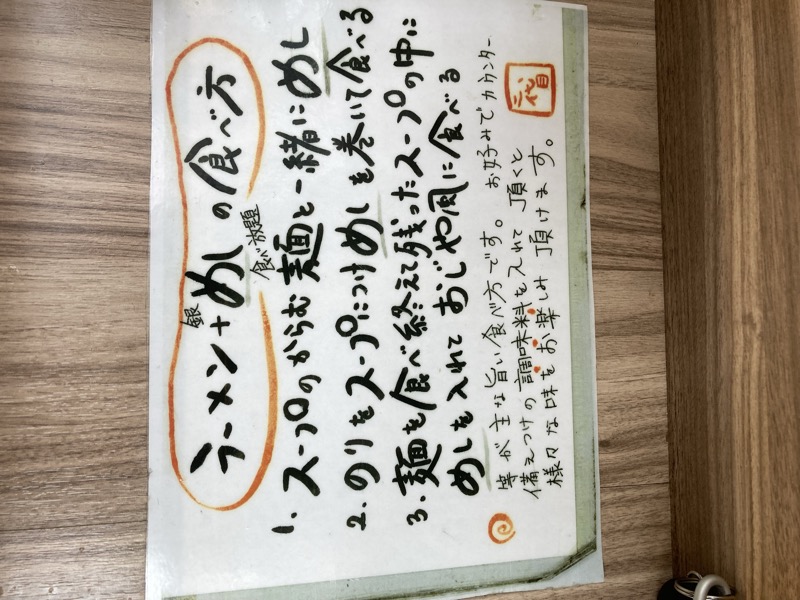 ラーメン+銀めしの食べ方
食べ放題
1. スープのからむ麺と一緒にめし
2. のりをスープにつけめしを巻いて食べる
3. 麺を食べ終えて残ったスープの中に
めしを入れておじや風に食べる
等が主な旨い食べ方です。お好みでカウンター
備えつけの調味料を入れて頂くと
様々な味をお楽しみ頂けます。
二代目